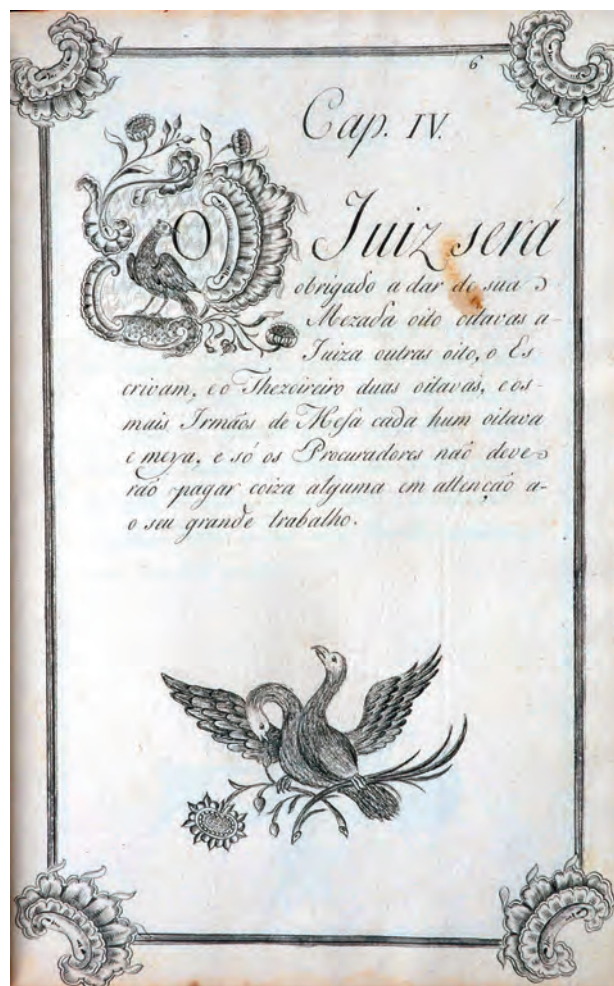 6
Cap. IV.
O Juiz será
obrigado a dar de sua
Mezada oito oitavas a
Juiza outras oito, o Es
crivam, e o Thezoireiro duas oitavas, e os
mais Irmãos de Mesa cada hum oitava
e meya, e só os Procuradores não deve
rão pagar coiza alguma em attenção a-
o seu grande trabalho.